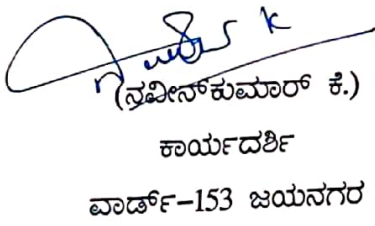 (ನವೀನ್‌ಕುಮಾರ್ ಕೆ.)
ಕಾರ್ಯದರ್ಶಿ
ವಾರ್ಡ್-153 ಜಯನಗರ